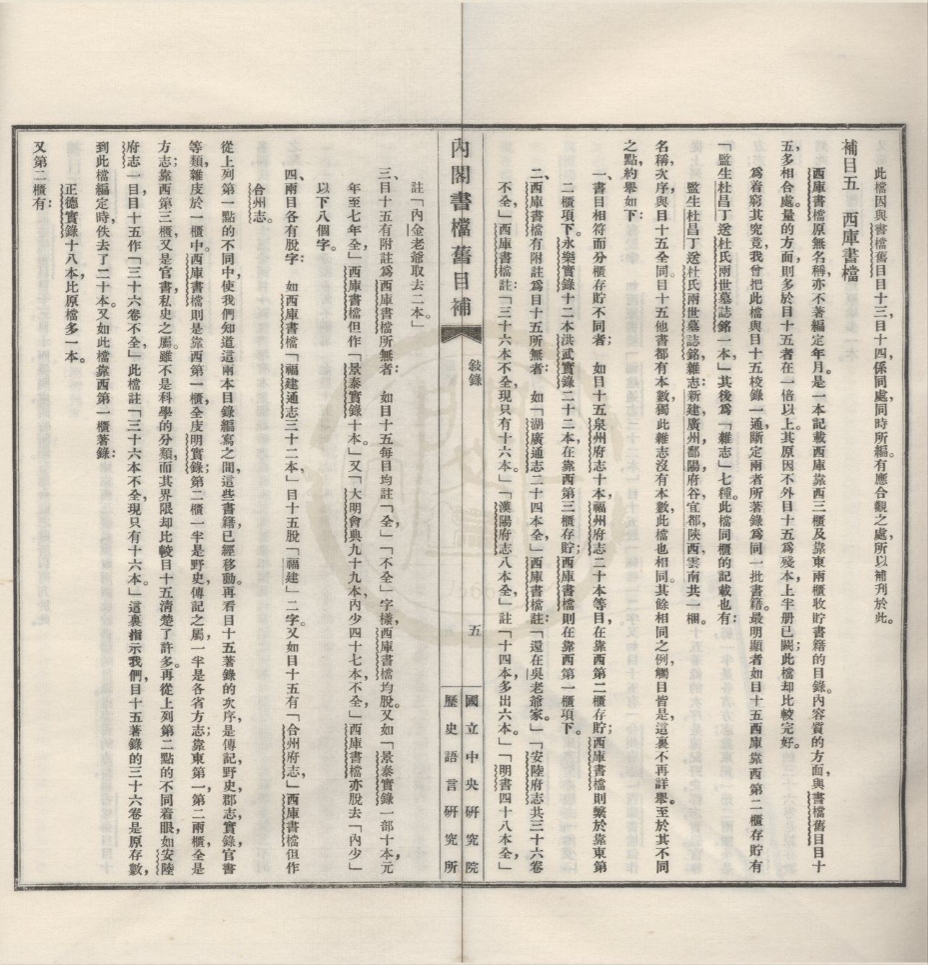 此檔因與書檔舊目目十三目十四，係同處，同時所編。有應合觀之處，所以補刊於此。
補目五　西庫書檔
西庫書檔原無名稱，亦不著編定年月。是一本記載西庫靠西三櫃及靠東兩櫃收貯書籍的目錄。內容質的方面，與書檔舊目目十
五多相合處。量的方面，則多於目十五者在一倍以上。其原因不外目十五爲殘本，上半册已闕；此檔却比較完好。
爲着窮其究竟，我曾把此檔與目十五校錄一通，斷定兩者所著錄爲同一批書籍。最明顯者如目十五西庫靠西第二櫃存貯有
「監生杜昌丁送杜氏兩世墓誌銘一本」，其後爲「雜志」七種。此檔同櫃的記載也有：
監生杜昌丁送杜氏兩世墓誌銘，雜志：新建，廣州，鄱陽府谷，宜都，陝西，雲南共一櫃。
名稱，次序，與目十五全同。目十五他書都有本數，獨此雜志沒有本數，此檔也相同。其餘相同之例，觸目皆是，這裏不再詳舉。至於其不同
之點，約舉如下：
一、書目相符而分櫃存貯不同者；　如目十五泉州府志十本，福州府志二十本等目，在靠西第二櫃存貯；西庫書檔則繫於靠東第
二櫃項下。永樂實錄十二本，洪武實錄二十二本，在靠西第三櫃存貯；西庫書檔則在靠西第一櫃項下。
二、西庫書檔有附註爲目十五所無者：　如「湖廣通志二十四本全，」西庫書檔註：「還在吳老爺家。」「安陸府志共三十六卷
不全，」西庫書檔註：「三十六本不全，現只有十六本。」「漢陽府志八本全，」註「十四本，多出六本。」「明書四十八本全，」
註「內金老爺取去二本。」
三、目十五有附註爲西庫書檔所無者：　如目十五每目均註「全，」「不全」字樣，西庫書檔均脫。又如「景泰實錄一部十本，元
年至七年全，」西庫書檔但作「景泰實錄十本。」又「大明會典九十九本，內少四十七本不全，」西庫書檔亦脫去「內少」
以下八個字。
四、兩目各有脫字：　如西庫書檔「福建通志三十二本，」目十五脫「福建」二字。又如目十五有「合州府志，」西庫書檔但作
合州志。
從上列第一點的不同中，使我們知道這兩本目錄編寫之間，這些書籍已經移動。再看目十五著錄的次序，是傳記，野史，郡志，實錄，官書
等類，雜庋於一櫃中。西庫書檔則是靠西第一櫃，全庋明實錄；第二櫃一半是野史，傳記之屬，一半是各省方志；靠東第一，第二兩櫃全是
方志；靠西第三櫃，又是官書，私史之屬。雖不是科學的分類，而其界限却比較目十五清楚了許多。再從上列第二點的不同着眼，如安陸
府志一目，目十五作「三十六卷不全，」此檔註「三十六本不全，現只有十六本。」這裏指示我們，目十五著錄的三十六卷是原存數，
到此檔編定時，佚去了二十本。又如此檔靠西第一櫃著錄：
正德實錄十八本，比原檔多一本。
又第二櫃有：
內閣書檔舊目補
敍錄
五
國立中央研究院
歷史語言研究所